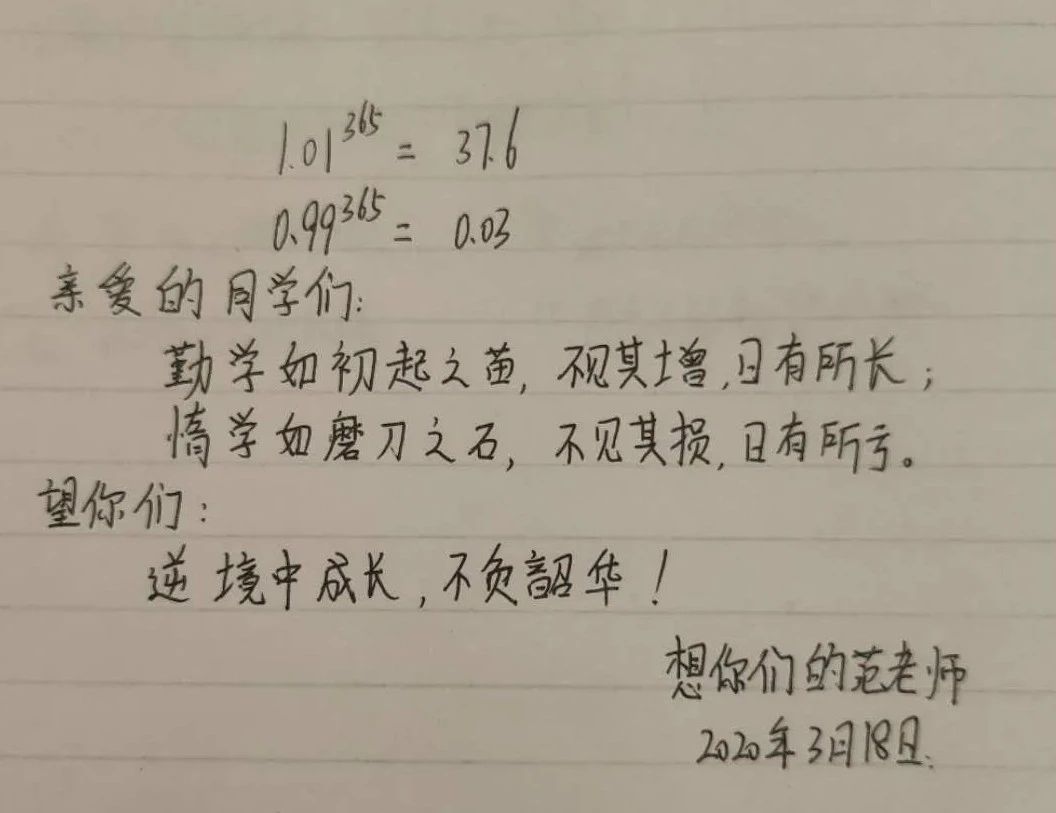 1.01³⁶⁵ = 37.6
0.99³⁶⁵ = 0.03
亲爱的同学们:
勤学如初起之苗, 不见其增,日有所长;
惰学如磨刀之石, 不见其损,日有所亏。
望你们:
逆境中成长,不负韶华!
想你们的范老师
2020年3月18日.